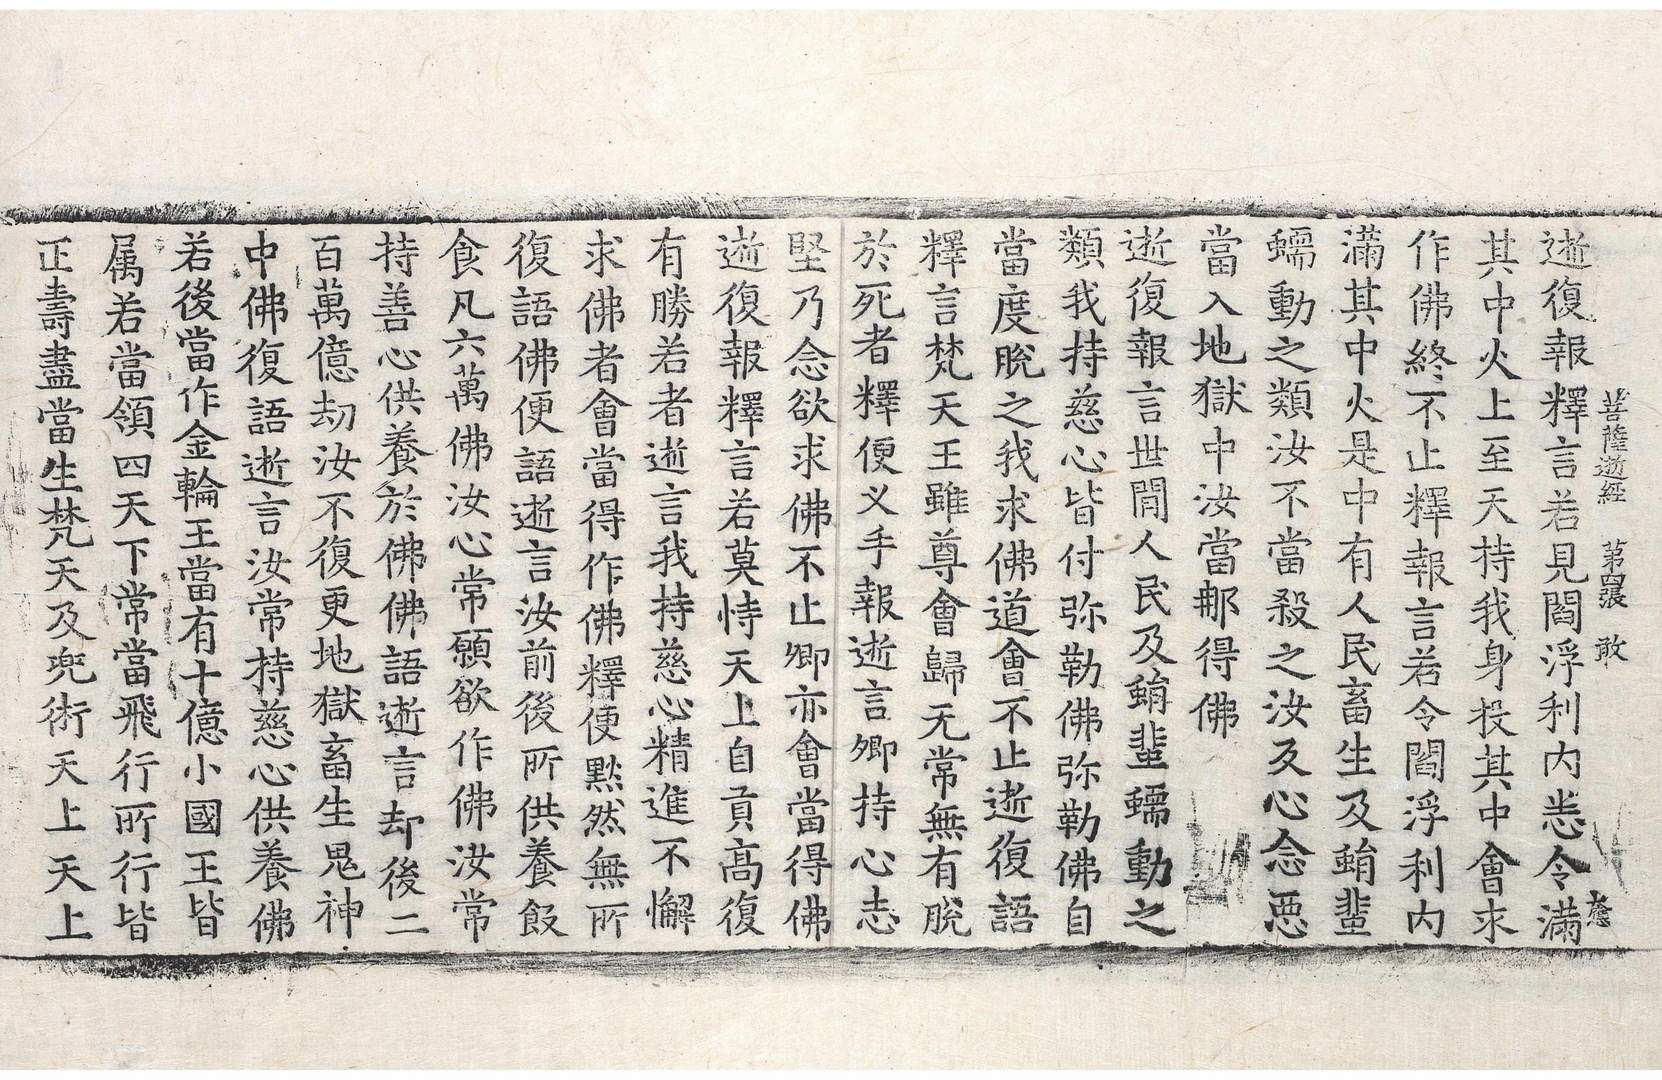 菩薩逝經 第四張 敢
逝復報釋言若見閻浮利內悉令滿
其中火上至天持我身投其中會求
作佛終不止釋報言若令閻浮利內
滿其中火是中有人民畜生及蜎蜚
蠕動之類汝不當殺之汝反心念惡
當入地獄中汝當那得佛
逝復報言世閒人民及蜎蜚蠕動之
類我持慈心皆付弥勒佛弥勒佛自
當度脫之我求佛道會不止逝復語
釋言梵天王雖尊會歸无常無有脫
於死者釋便叉手報逝言卿持心志
堅乃念欲求佛不止卿亦會當得佛
逝復報釋言若莫恃天上自貢高復
有勝若者逝言我持慈心精進不懈
求佛者會當得作佛釋便默然無所
復語佛便語逝言汝前後所供養飯
食凡六萬佛汝心常願欲作佛汝常
持善心供養於佛佛語逝言却後二
百萬億劫汝不復更地獄畜生鬼神
中佛復語逝言汝常持慈心供養佛
若後當作金輪王當有十億小國王皆
属若當領四天下常當飛行所行皆
正壽盡當生梵天及兜術天上天上